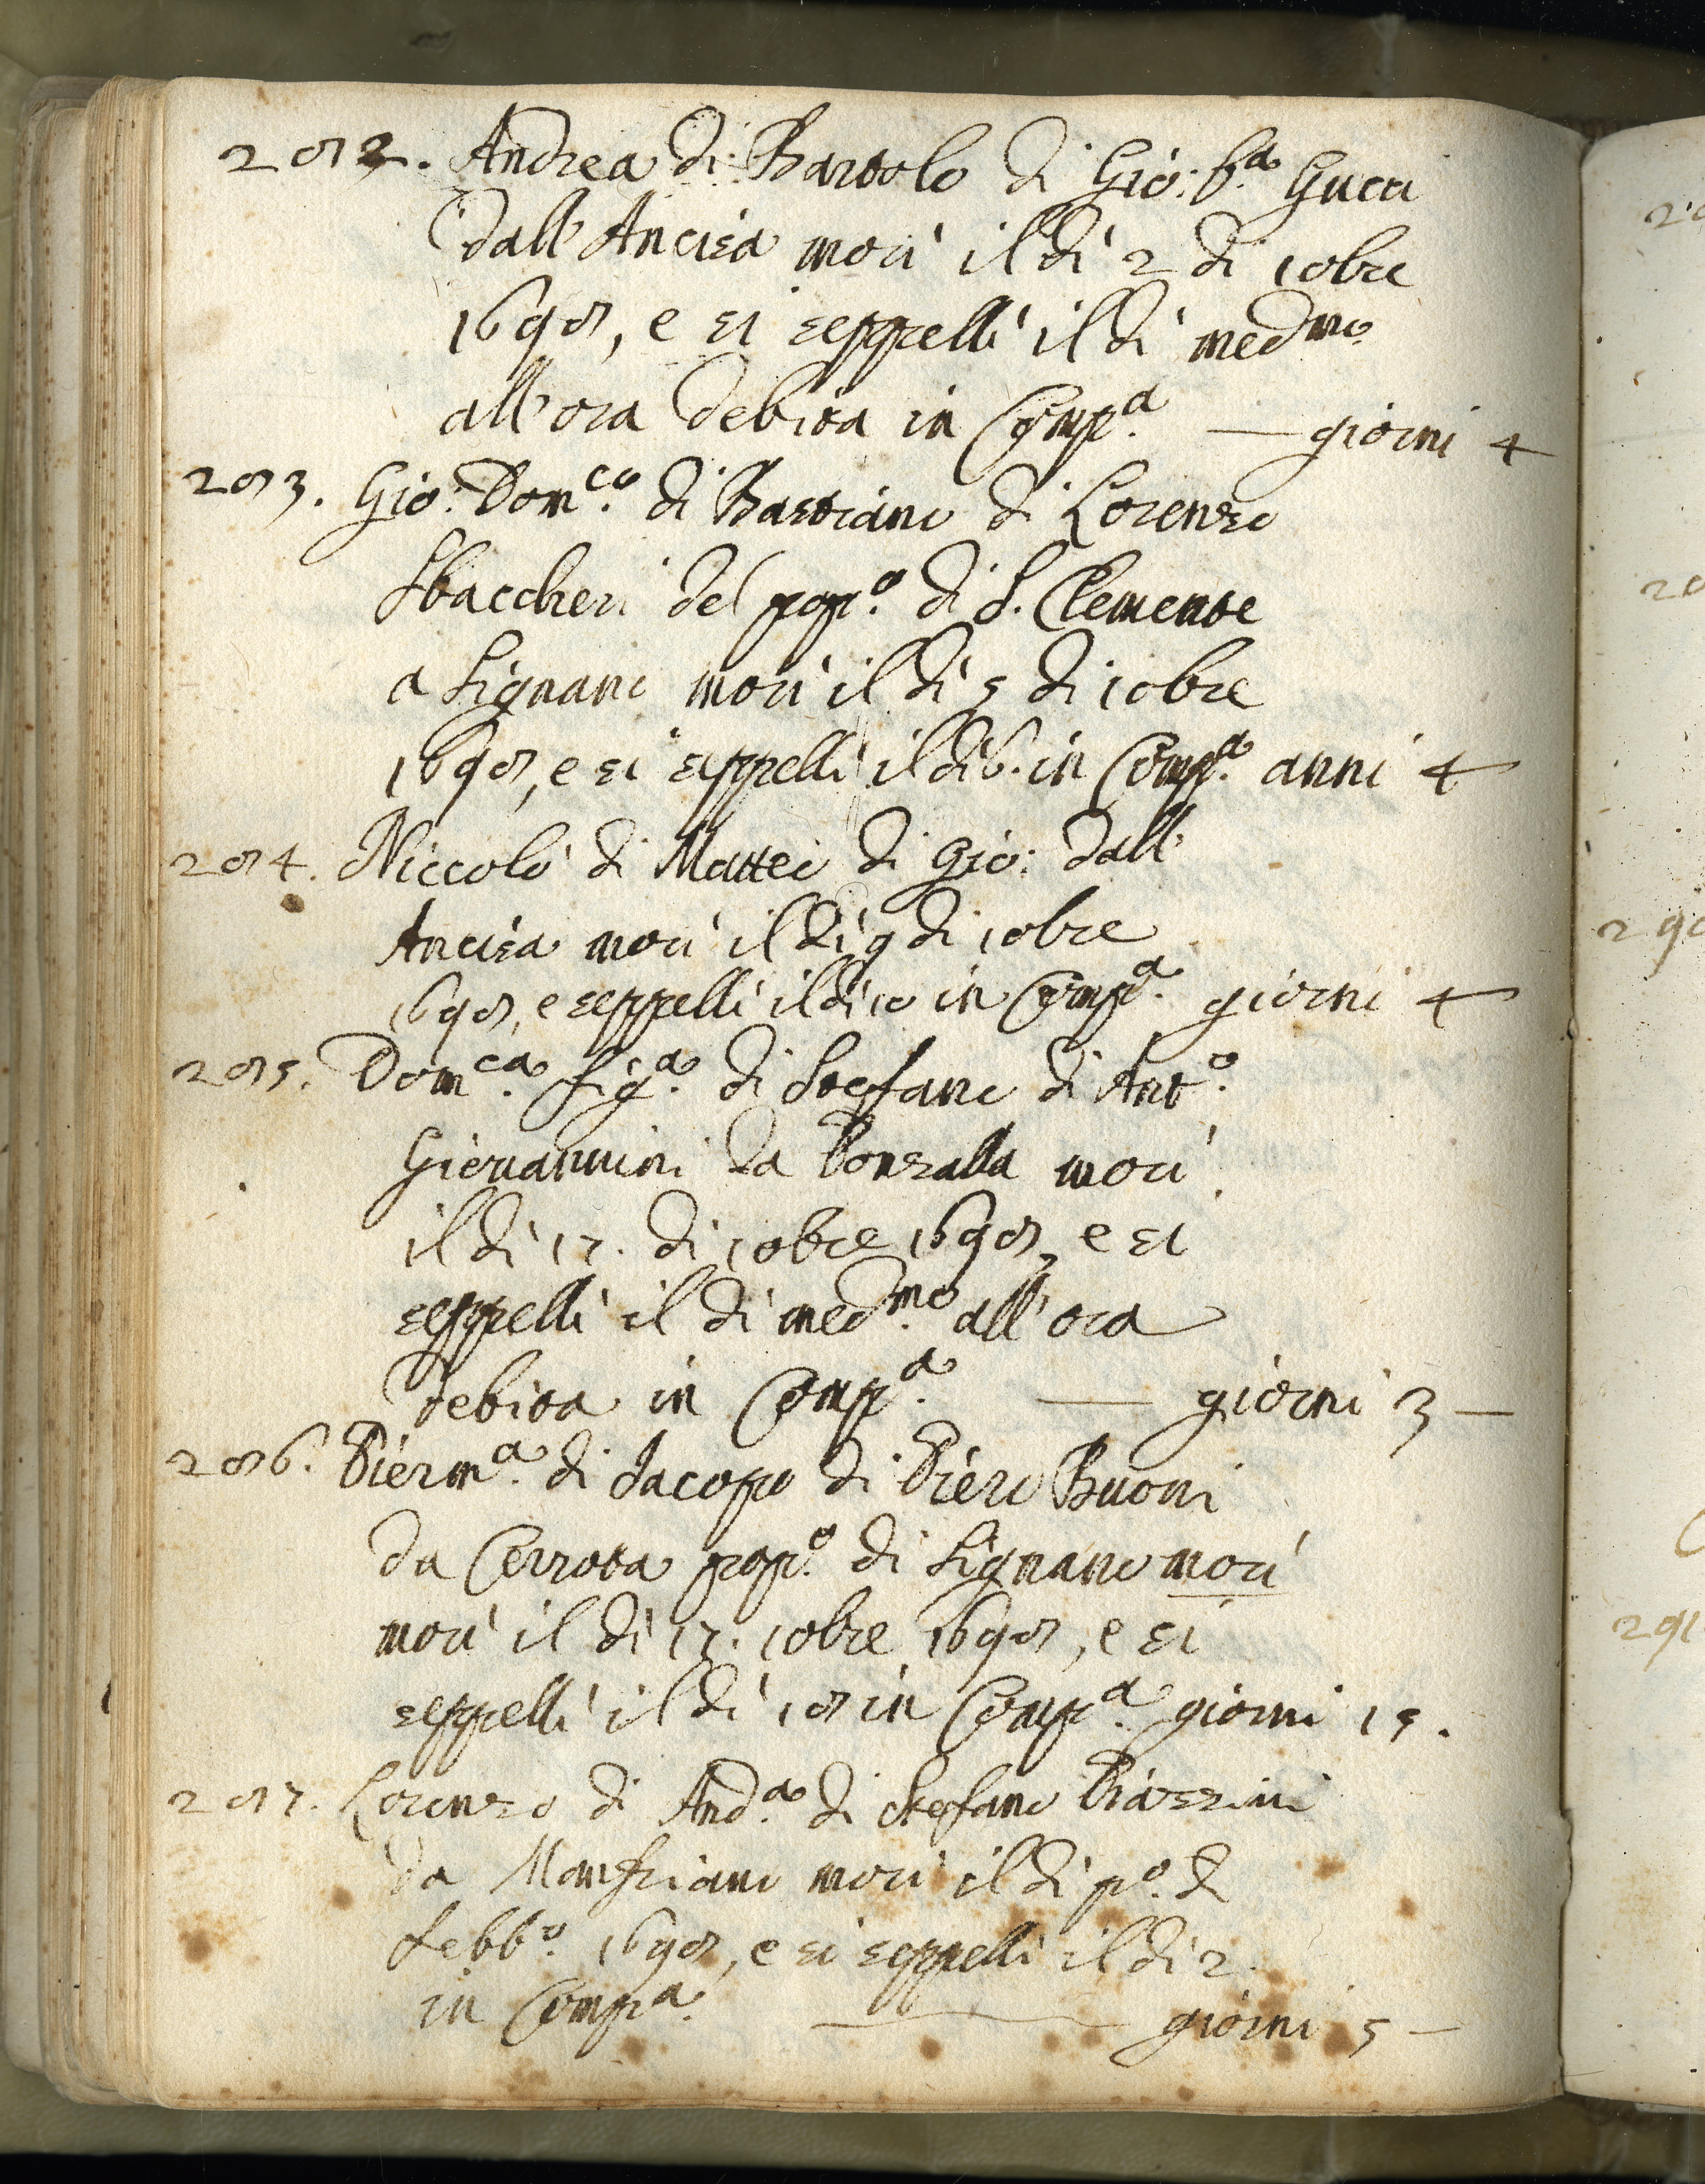 282. Andrea di Bartolo di Gio: b.a Gucci
dall'Ancisa morì il dì 2 di 10bre
1698, e si seppellì il dì med.mo
all'ora debita in Comp.a — giorni 4
283. Gio: Dom.co di Bastiano di Lorenzo
Sbaccheri del pop.o di S. Clemente
a Signano morì il dì 5 di 10bre
1698, e si seppellì il dì 6. in Comp.a anni 4
284. Niccolò di Matteo di Gio: dall'
Ancisa morì il dì 9 di 10bre
1698, e seppellì il dì 10 in Comp.a giorni 4
285. Dom.ca fig.a di Stefano di Ant.o
Giovannini da Ponzalla morì
il dì 17. di 10bre 1698, e si
seppellì il dì med.mo all'ora
debita in Comp.a — giorni 3 —
286. Pierm.a di Jacopo di Piero Buoni
da Cerrota pop.o di Signano morì
morì il dì 17. 10bre 1698, e si
seppellì il dì 18 in Comp.a giorni 15.
287. Lorenzo di And.a di Stefano Piazzini
da Monfriano morì il dì p.o di
Febb.o 1698, e si seppellì il dì 2.
in Comp.a — giorni 5 —